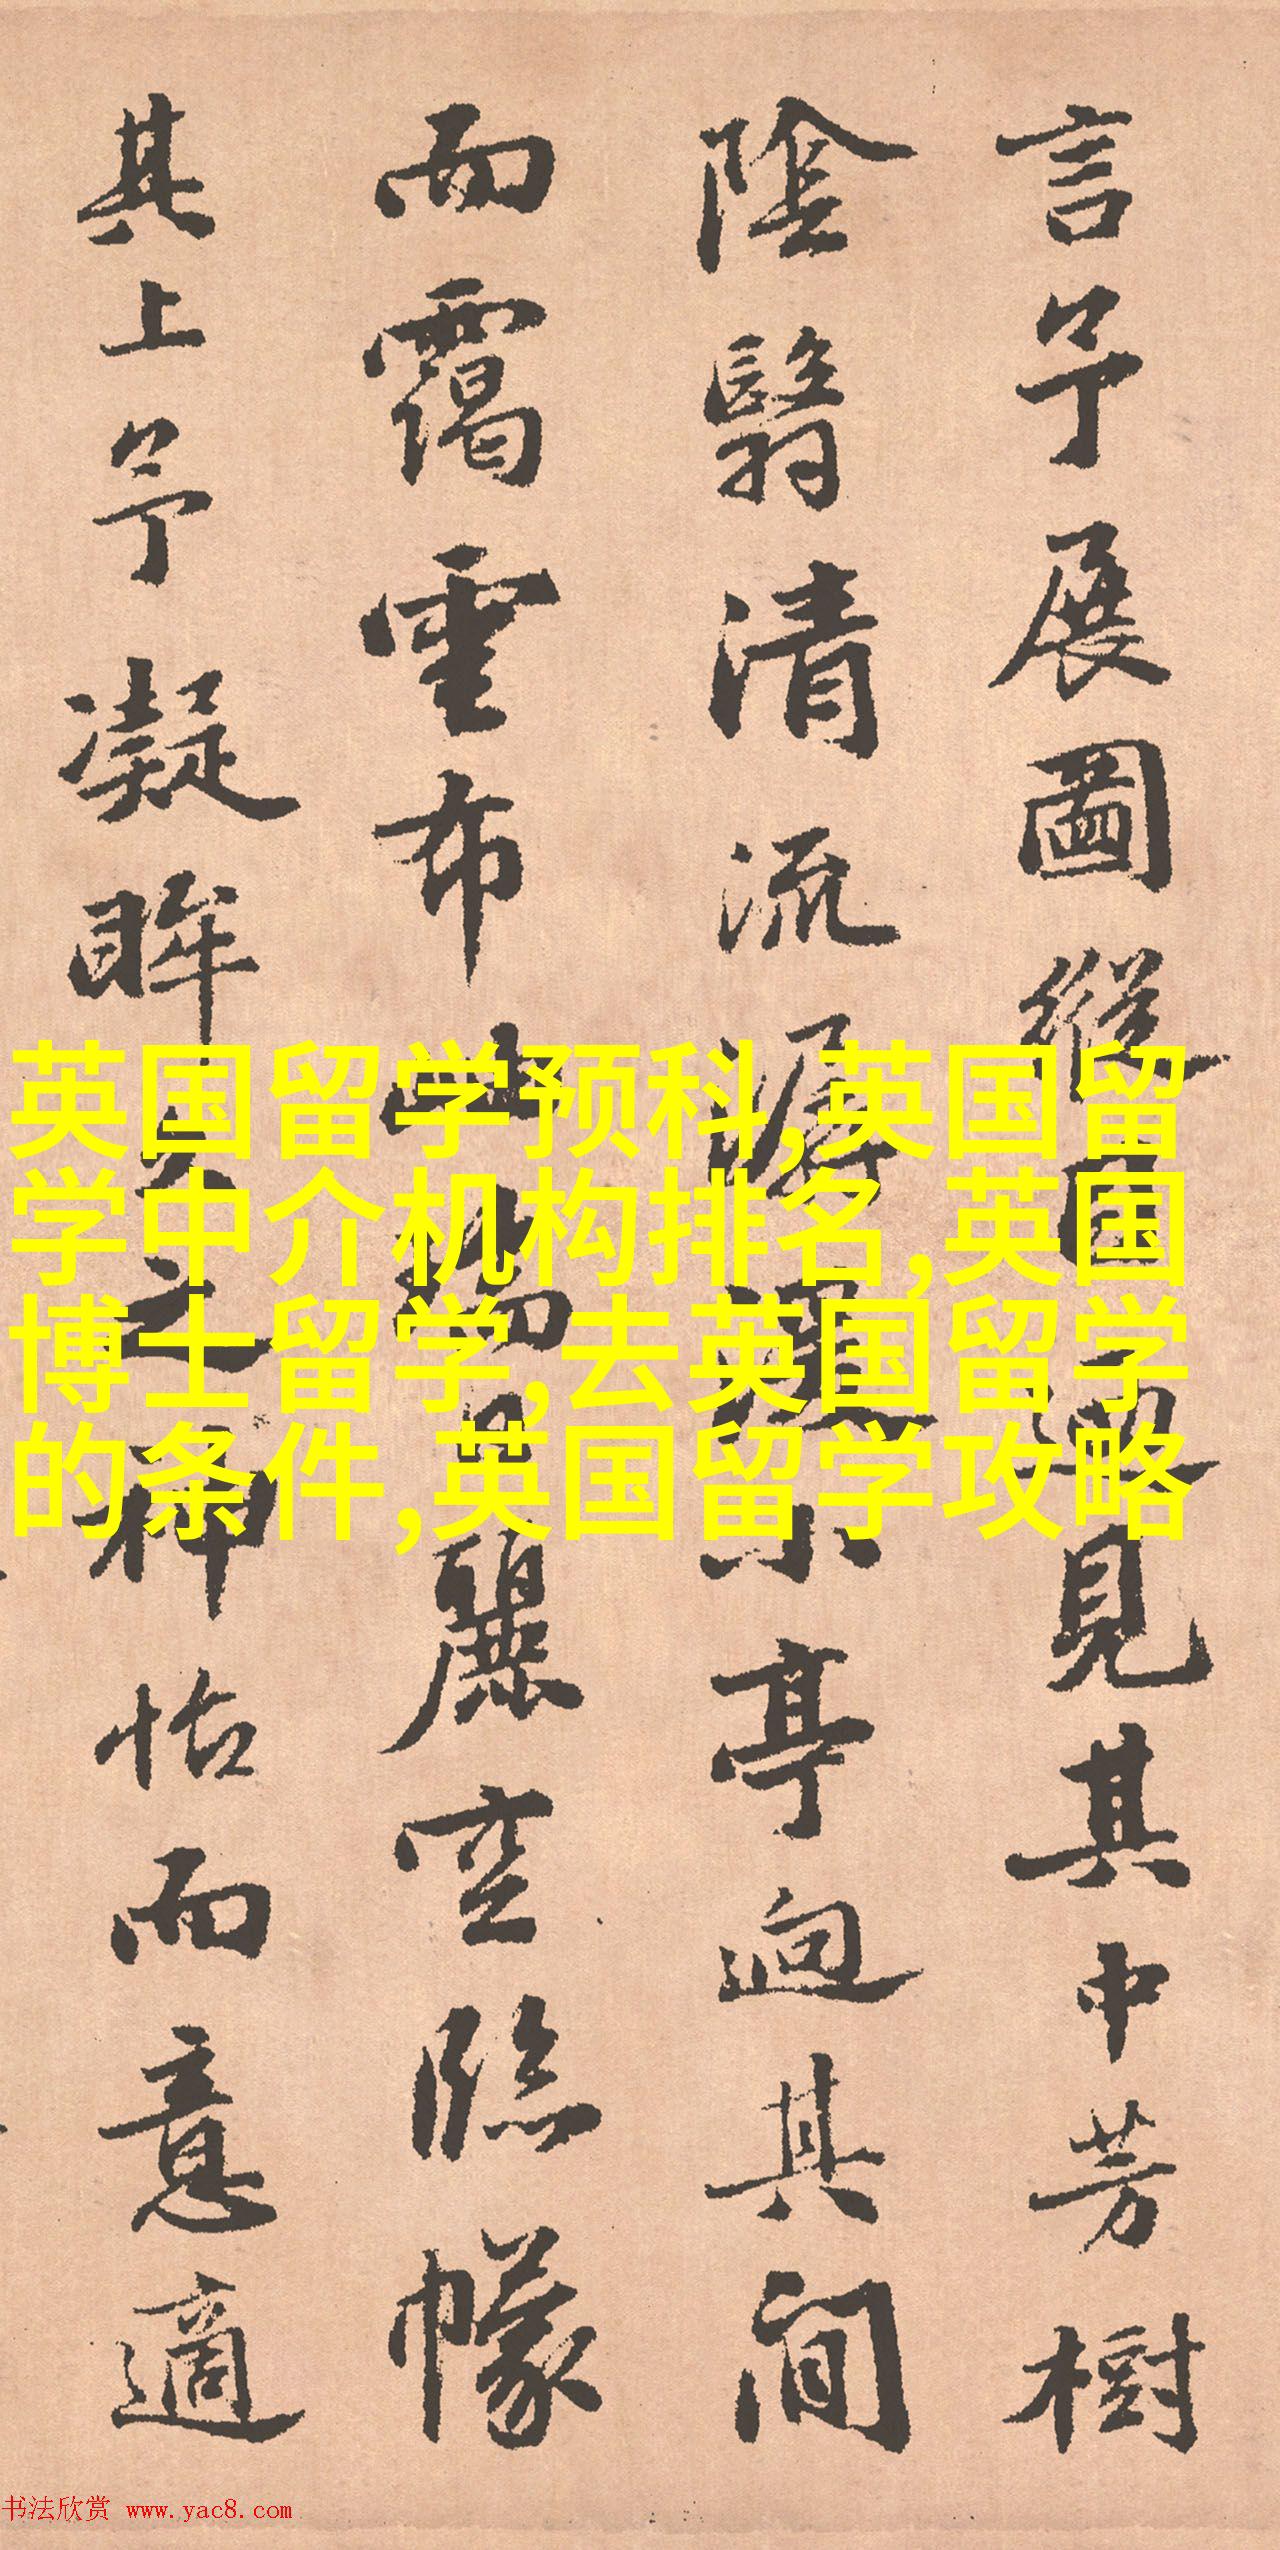 言予展圖縱目見其中芳樹
陰翳清流潺湲小亭逈其間
而靄雲布山日麗空臨幪
其上予凝眸久之神怡而意適
英国留学预科,英国留
学中介机构排名,英国
博士留学,去英国留学
的条件,英国留学攻略
书法欣赏 www.yac8.com